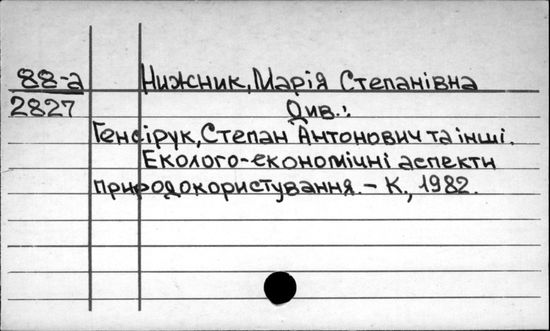 88-а Нижник, Марія Степанівна
2827 Див.:
Генсірук, Степан Антонович та інші.
Еколого-економічні аспекти
природокористування. – К., 1982.